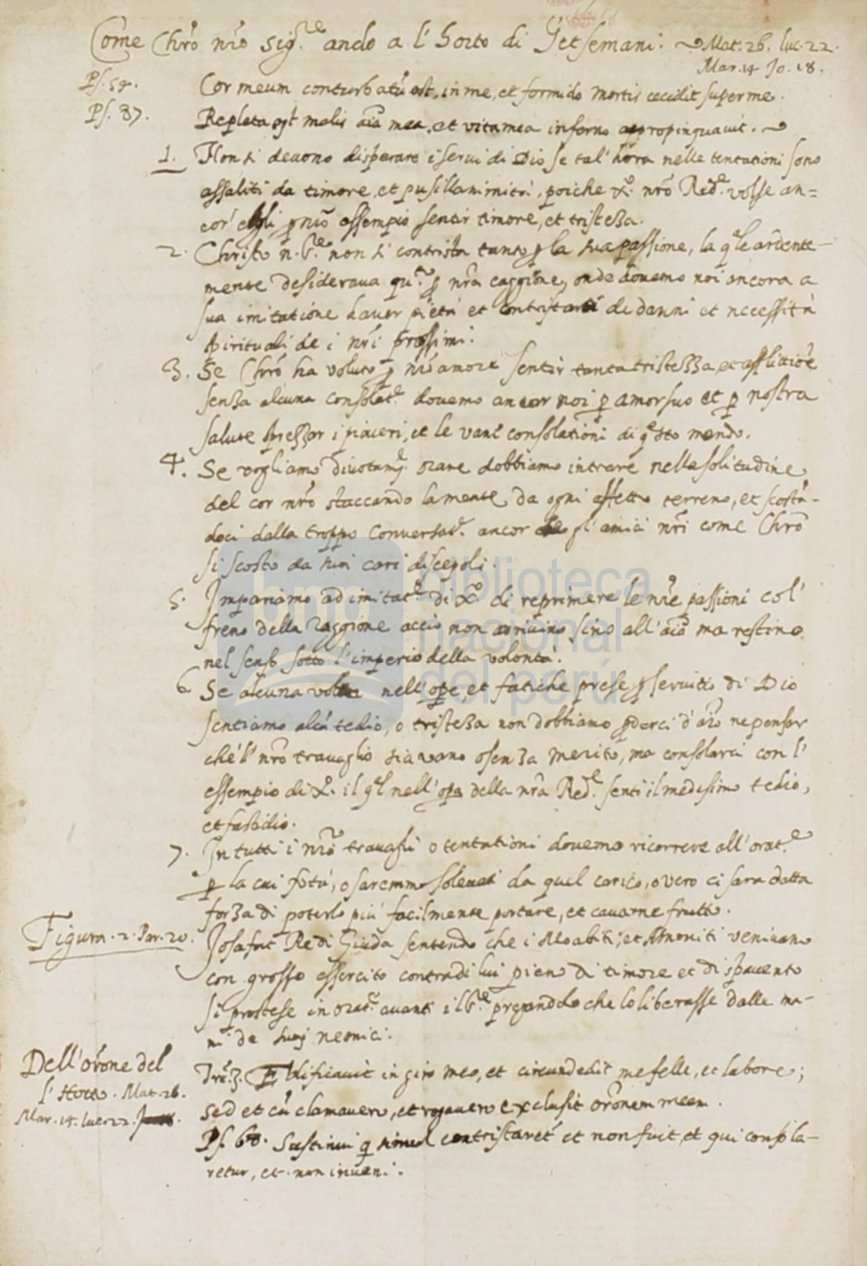 Come Chr̃o nr̃o sig.re andò a l'horto di Getsemani. Mat. 26. luc. 22.
Mar. 14 Jo. 18.
Ps. 54. Cor meum conturbatũ est, in me, et formido mortis cecidit super me.
Ps. 87. Repleta est malis aĩa mea, et vita mea inferno appropinquavit.
1. Non si devono disperare i servi di Dio se tal'hora nelle tentationi sono
assaliti da timore, et pusillanimità, poiche X.o nr̃o Red.e volse an=
cor' egli ꝑ nr̃o essempio sentir timore, et tristezza.
2. Christo n. S.re non si contristò tanto ꝑ la sua passione, la q̃le ardente-
mente desiderava qu.to ꝑ nr̃a caggione, onde dovemo noi ancora a
sua imitatione haver pietà et contristarci de danni et necessità
spirituali de i nr̃i prossimi.
3. Se Chr̃o ha voluto ꝑ nr̃o amore sentir tanta tristezza, et afflittiõe
senza alcuna consolat.e dovemo ancor noi ꝑ amor suo et ꝑ nostra
salute sprezzar i piaceri, et le vane consolationi di q̃sto mondo.
4. Se vogliamo divotam.te orare dobbiamo intrare nella solitudine
del cor nr̃o staccando la mente da ogni affetto terreno, et scostã-
doci dalla troppo conversat.e ancor de gl'amici nr̃i come Chr̃o
si scostò da suoi cari discepoli.
5. Impariamo ad imitat.e di X.o di reprimere le nr̃e passioni col'
freno della raggione acciò non arrivino sino all'aĩa ma restino
nel senso sotto l'imperio della volontà.
6. Se alcuna volta nell'op̃e, et fatiche prese ꝑ servitio di Dio
sentiamo alcũ tedio, o tristezza non dobbiamo ꝑderci d'aĩo ne pensar
che'l nr̃o travaglio sia vano o senza merito, ma consolarci con l'
essempio di X.o il q̃l nell'opa della nr̃a Red.e senti il medesimo tedio,
et fastidio.
7. In tutti i nr̃i travagli o tentationi dovemo ricorrere all'orat.e
ꝑ la cui virtù, o saremmo solevati da quel carico, o vero ci sarà datta
forza di poterlo più facilmente portare, et cavarne frutto.
Figura. 2. Par. 20. Josafat Re di Giuda sentendo che i Moabiti, et Amoniti venivano
con grosso essercito contra di lui pieno di timore et di spavento
si prostese in orat.e avanti il S.re pregandolo che lo liberasse dalle ma-
ni de suoi nemici.
Dell'orõne del
l'Horto. Mat. 26.
Mar. 14. luc 22.
Tre. 3. Edificavit in giro meo, et circundedit me felle, et labore;
sed et cũ clamavero, et rogavero exclusit orõnem meam.
Ps. 68. Sustinui q̃ simul contristaret.r et non fuit, et qui consola-
retur, et non inveni.
biblioteca
nacional
del perú